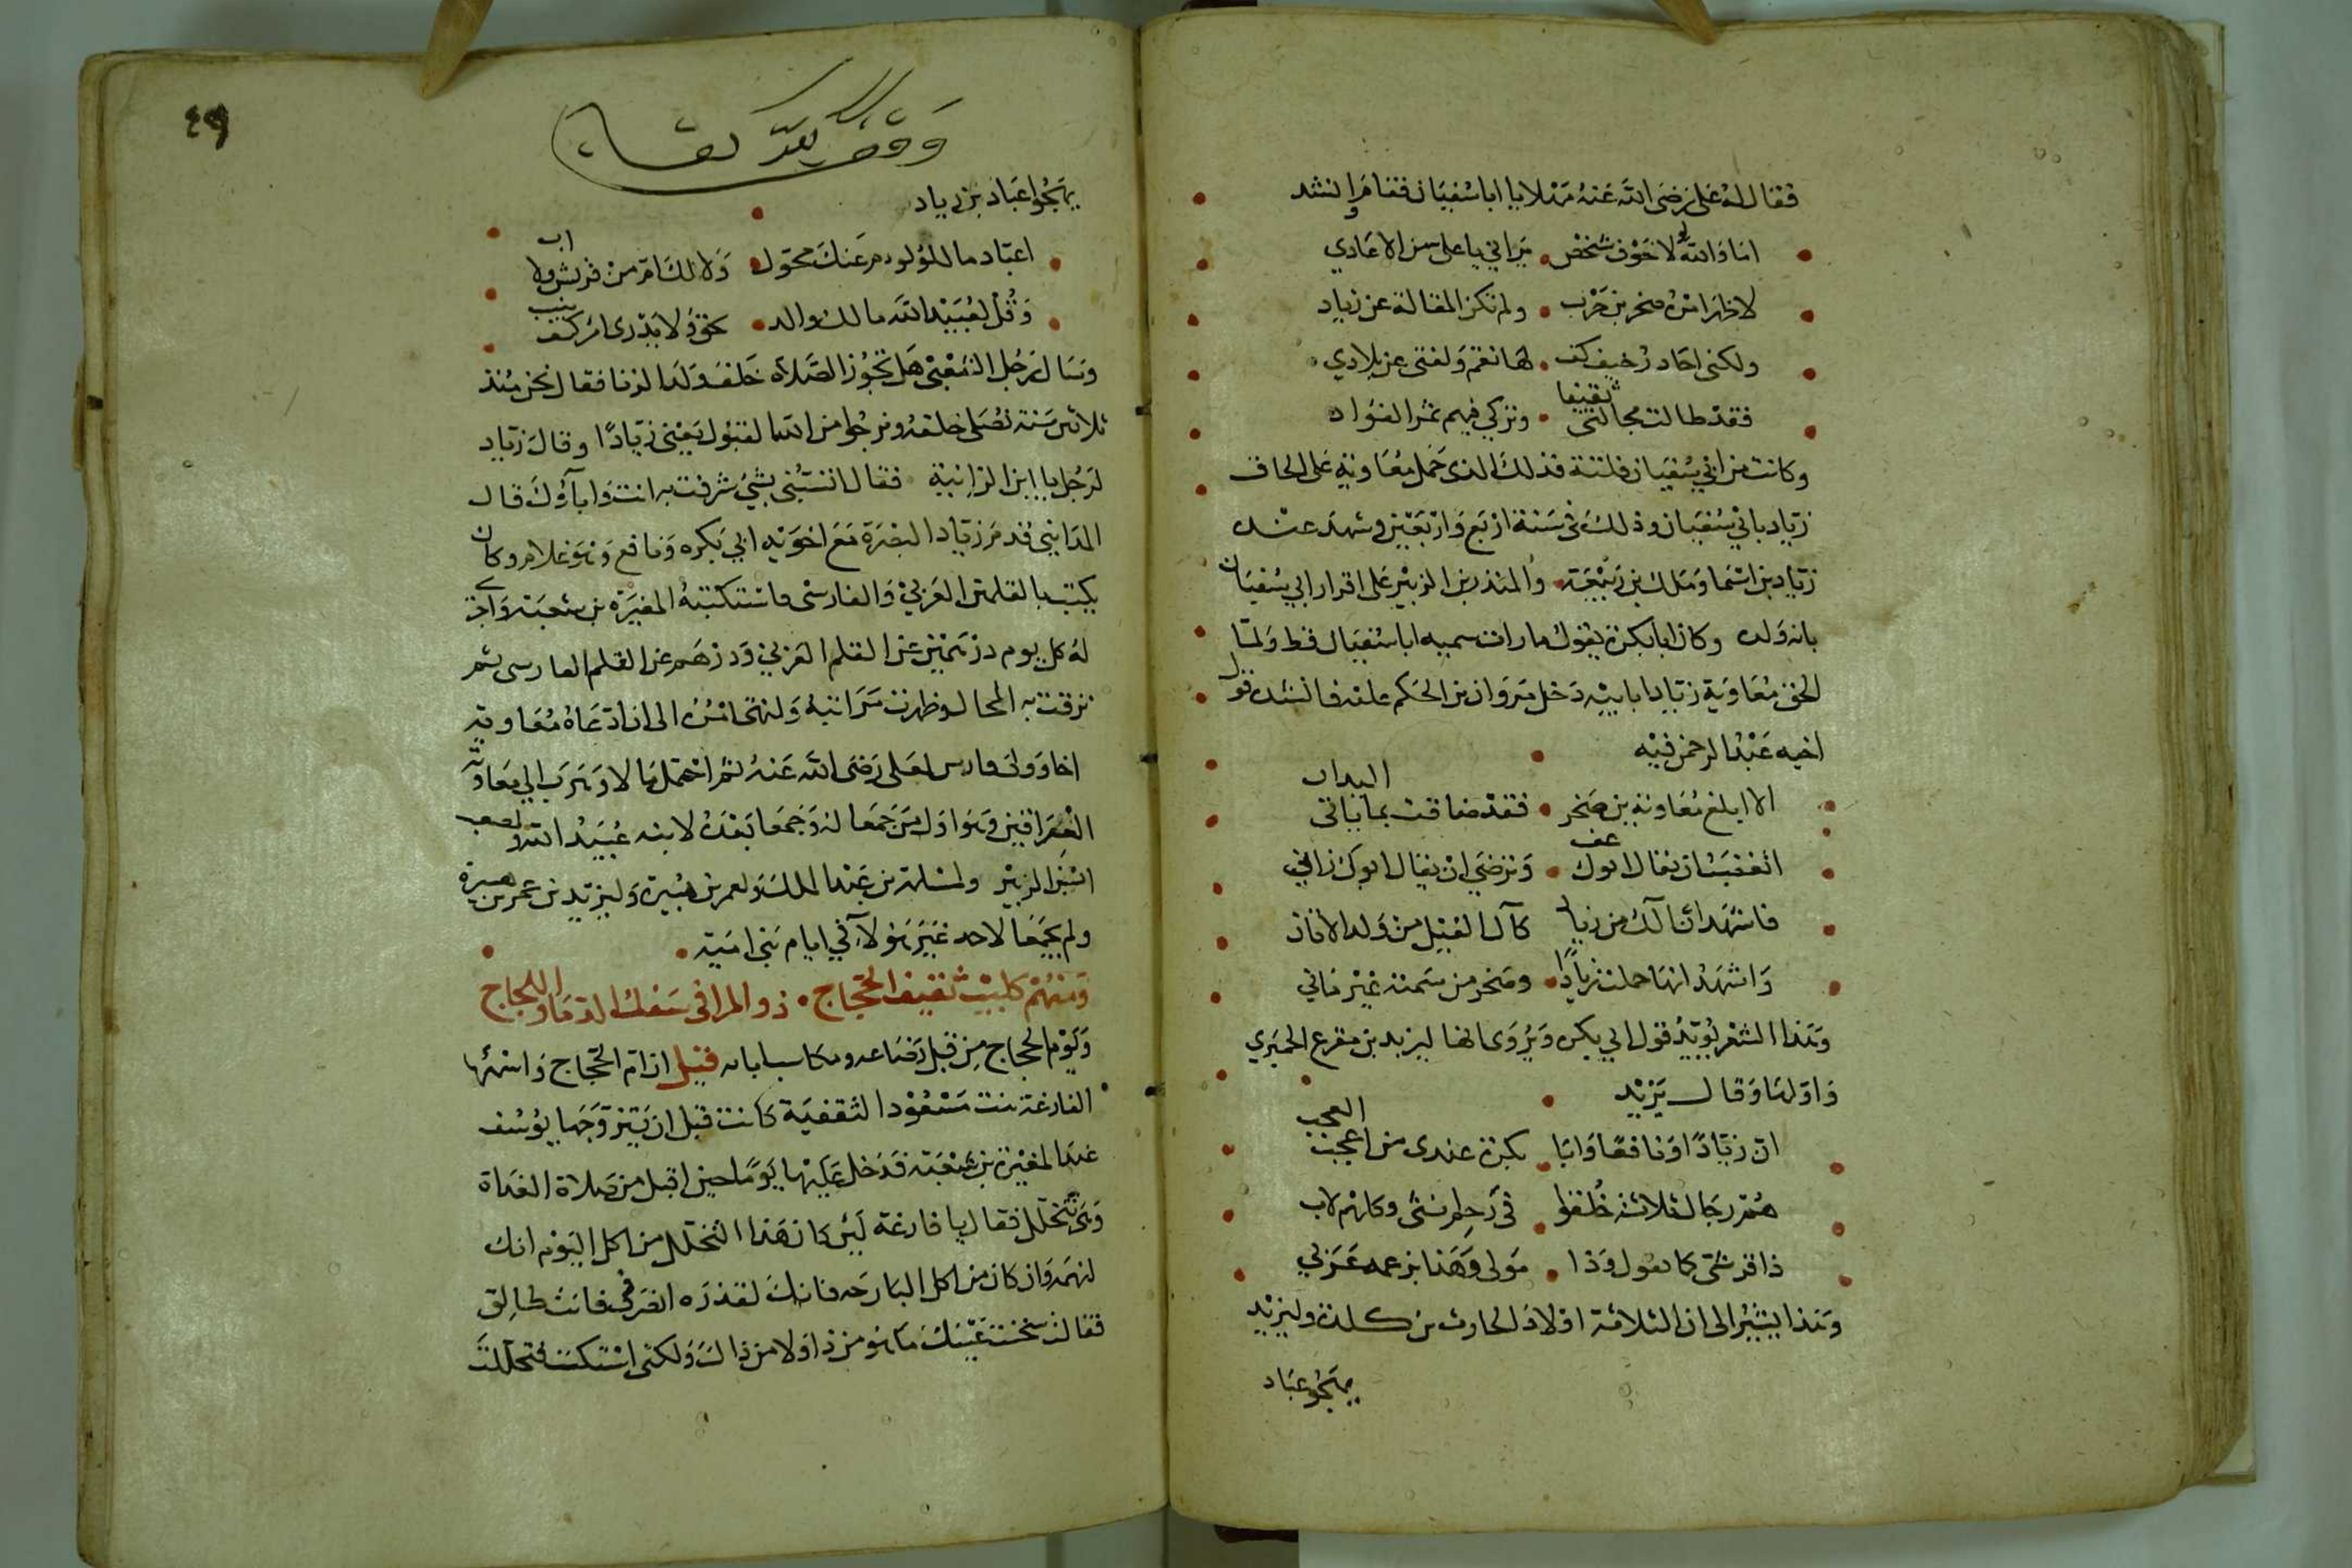 فقال له على رضى الله عنه مهلا يا ابا سفيان فقام وانشد
اما والله لولا خوف شخص • يرانى يا على من الاعادي
لاظهر امره صخر بن حرب • ولم تكن المقالة عن زياد
ولكنى احاذر خيف كف • لها نقم ولفتى عن بلادي
فقد طالت مجالتى ثقيفا • وتركي فيهم ثمر الفؤاد
وكانت من ابي سفيان فلتة فذلك الذى حمل معاوية على الحاق
زياد بابي سفيان وذلك فى سنة اربع واربعين وشهد عنده
زياد بن اسما ومالك بن ربيعة والمنذر بن الزبير على اقرار ابي سفيان
بانه ولده وكان ابا بكرة يقول ما رات سميه ابا سفيان قط ولما
الحق معاوية زيادا بابيه دخل مروان بن الحكم عليه فانشده قول
اخيه عبد الرحمن فيه
الا ابلغ معاوية بن صخر • فقد ضاقت بما ياتى اليدان
اتغضب ان يقال ابوك عف • وترضى ان يقال ابوك زاني
فاشهد ان الك من زياد كآل الفيل من ولد الاتان
واشهد انها حملت زيادا • وصخر من سمية غير دانى
وهذا الشعر يؤيد قول ابي بكره ويروى انها ليزيد بن مفرع الحميري
واولها وقال يزيد
ان زيادا ونافعا وابا • بكرة عندى من اعجب العجب
هم رجال ثلاثة خلقوا • فى رحم انثى وكلهم لاب
ذا قرشى كما يقول وذا • مولى وهذا بزعمه عربي
وهذا يشير الى ان الثلاثة اولاد الحارث بن كلدة وليزيد
يهجو عباد
٤٩
وقف لله تعالى
يهجوا عباد بن زياد
اعباد ما للؤلوم عنك محول • ولا لك ام من قريش ولا اب
وقل لعبيد الله مالك والد • بحق ولا يدرى امرؤ كيف ينسب
وسال رجل الشعبى هل تجوز الصلاة خلف ولد الزنا فقال نحن منذ
ثلاثين سنة نصلى خلفه ونرجوا من الله القبول يعنى زيادا وقال زياد
لرجل يا ابن الزانية فقال اتسبنى بشئ شرفت به انت وابآؤك قال
المدايني قدم زياد البصرة مع اخويه ابي بكره ونافع وهو غلام وكان
يكتب بالقلمين العربي والفارسى فاستكتبه المغيرة بن شعبة واجرى
له كل يوم درهمين عن القلم العربي ودرهم عن القلم الفارسى ثم
ترقت به الحال وظهرت مراتبه ولنتجا امره الى ان ادعاه معاوية
اخا وولى فارس لعلى رضى الله عنه ثم احتمل مالا وهرب الى معاوية
العراقين وهو اول من جمعا له وجمعا بعده لابنه عبيد الله ولمصعب
ابن الزبير ولمسلمة بن عبد الملك ولعمر بن هبيرة وليزيد بن عمر بن هبيرة
ولم يجمعا لاحد غير هولآء في ايام بنى امية •
ومنهم كليب ثقيف الحجاج • ذو المراقى سفك الدما واللجاج
ولؤم الحجاج من قبل رضاعه ومكاسب ابائه قيل ان ام الحجاج واسمها
الفارغة بنت مسعود الثقفية كانت قبل ان يتزوجها يوسف
عند المغيرة بن شعبة فدخل عليها يوما حين اقبل من صلاة الغداة
وهى تتخلل فقال يا فارغة لئن كان هذا التخلل من اكل اليوم انك
لنهمه وان كان من اكل البارحه فانك لقذره انصرفى فانت طالق
فقالت سخنت عينك ما هو من ذا ولا من ذاك ولكنى استكت فتخللت